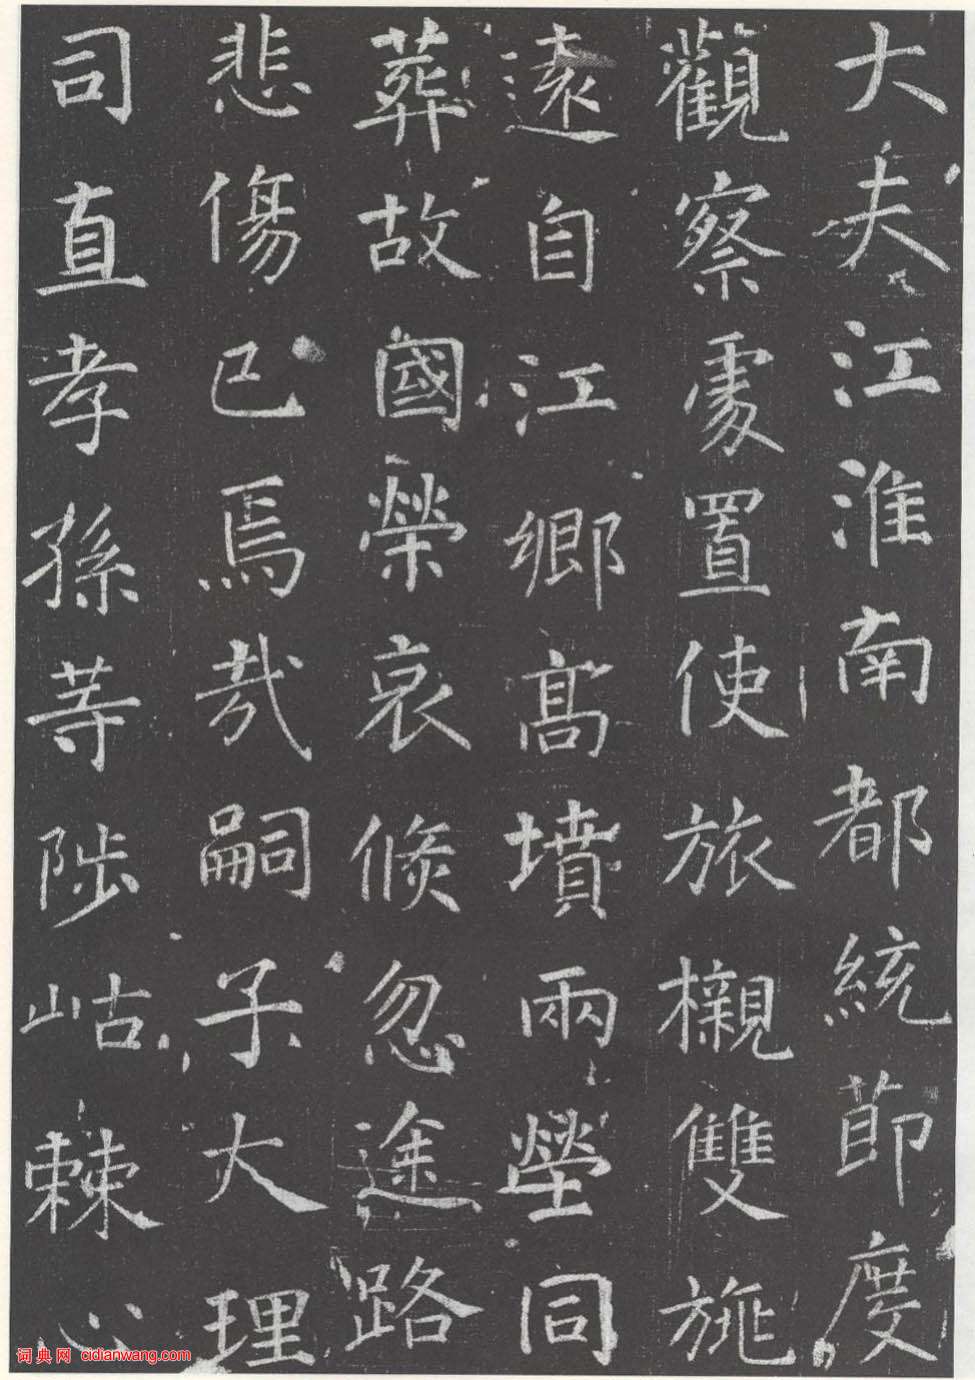 大夫江淮南都統節度
觀察處置使旅櫬雙旐
遠自江鄉高墳兩塋同
葬故國榮哀倏忽途路
悲傷已焉哉嗣子大理
司直孝孫等陟岵棘心
词典网 cidianwang.com